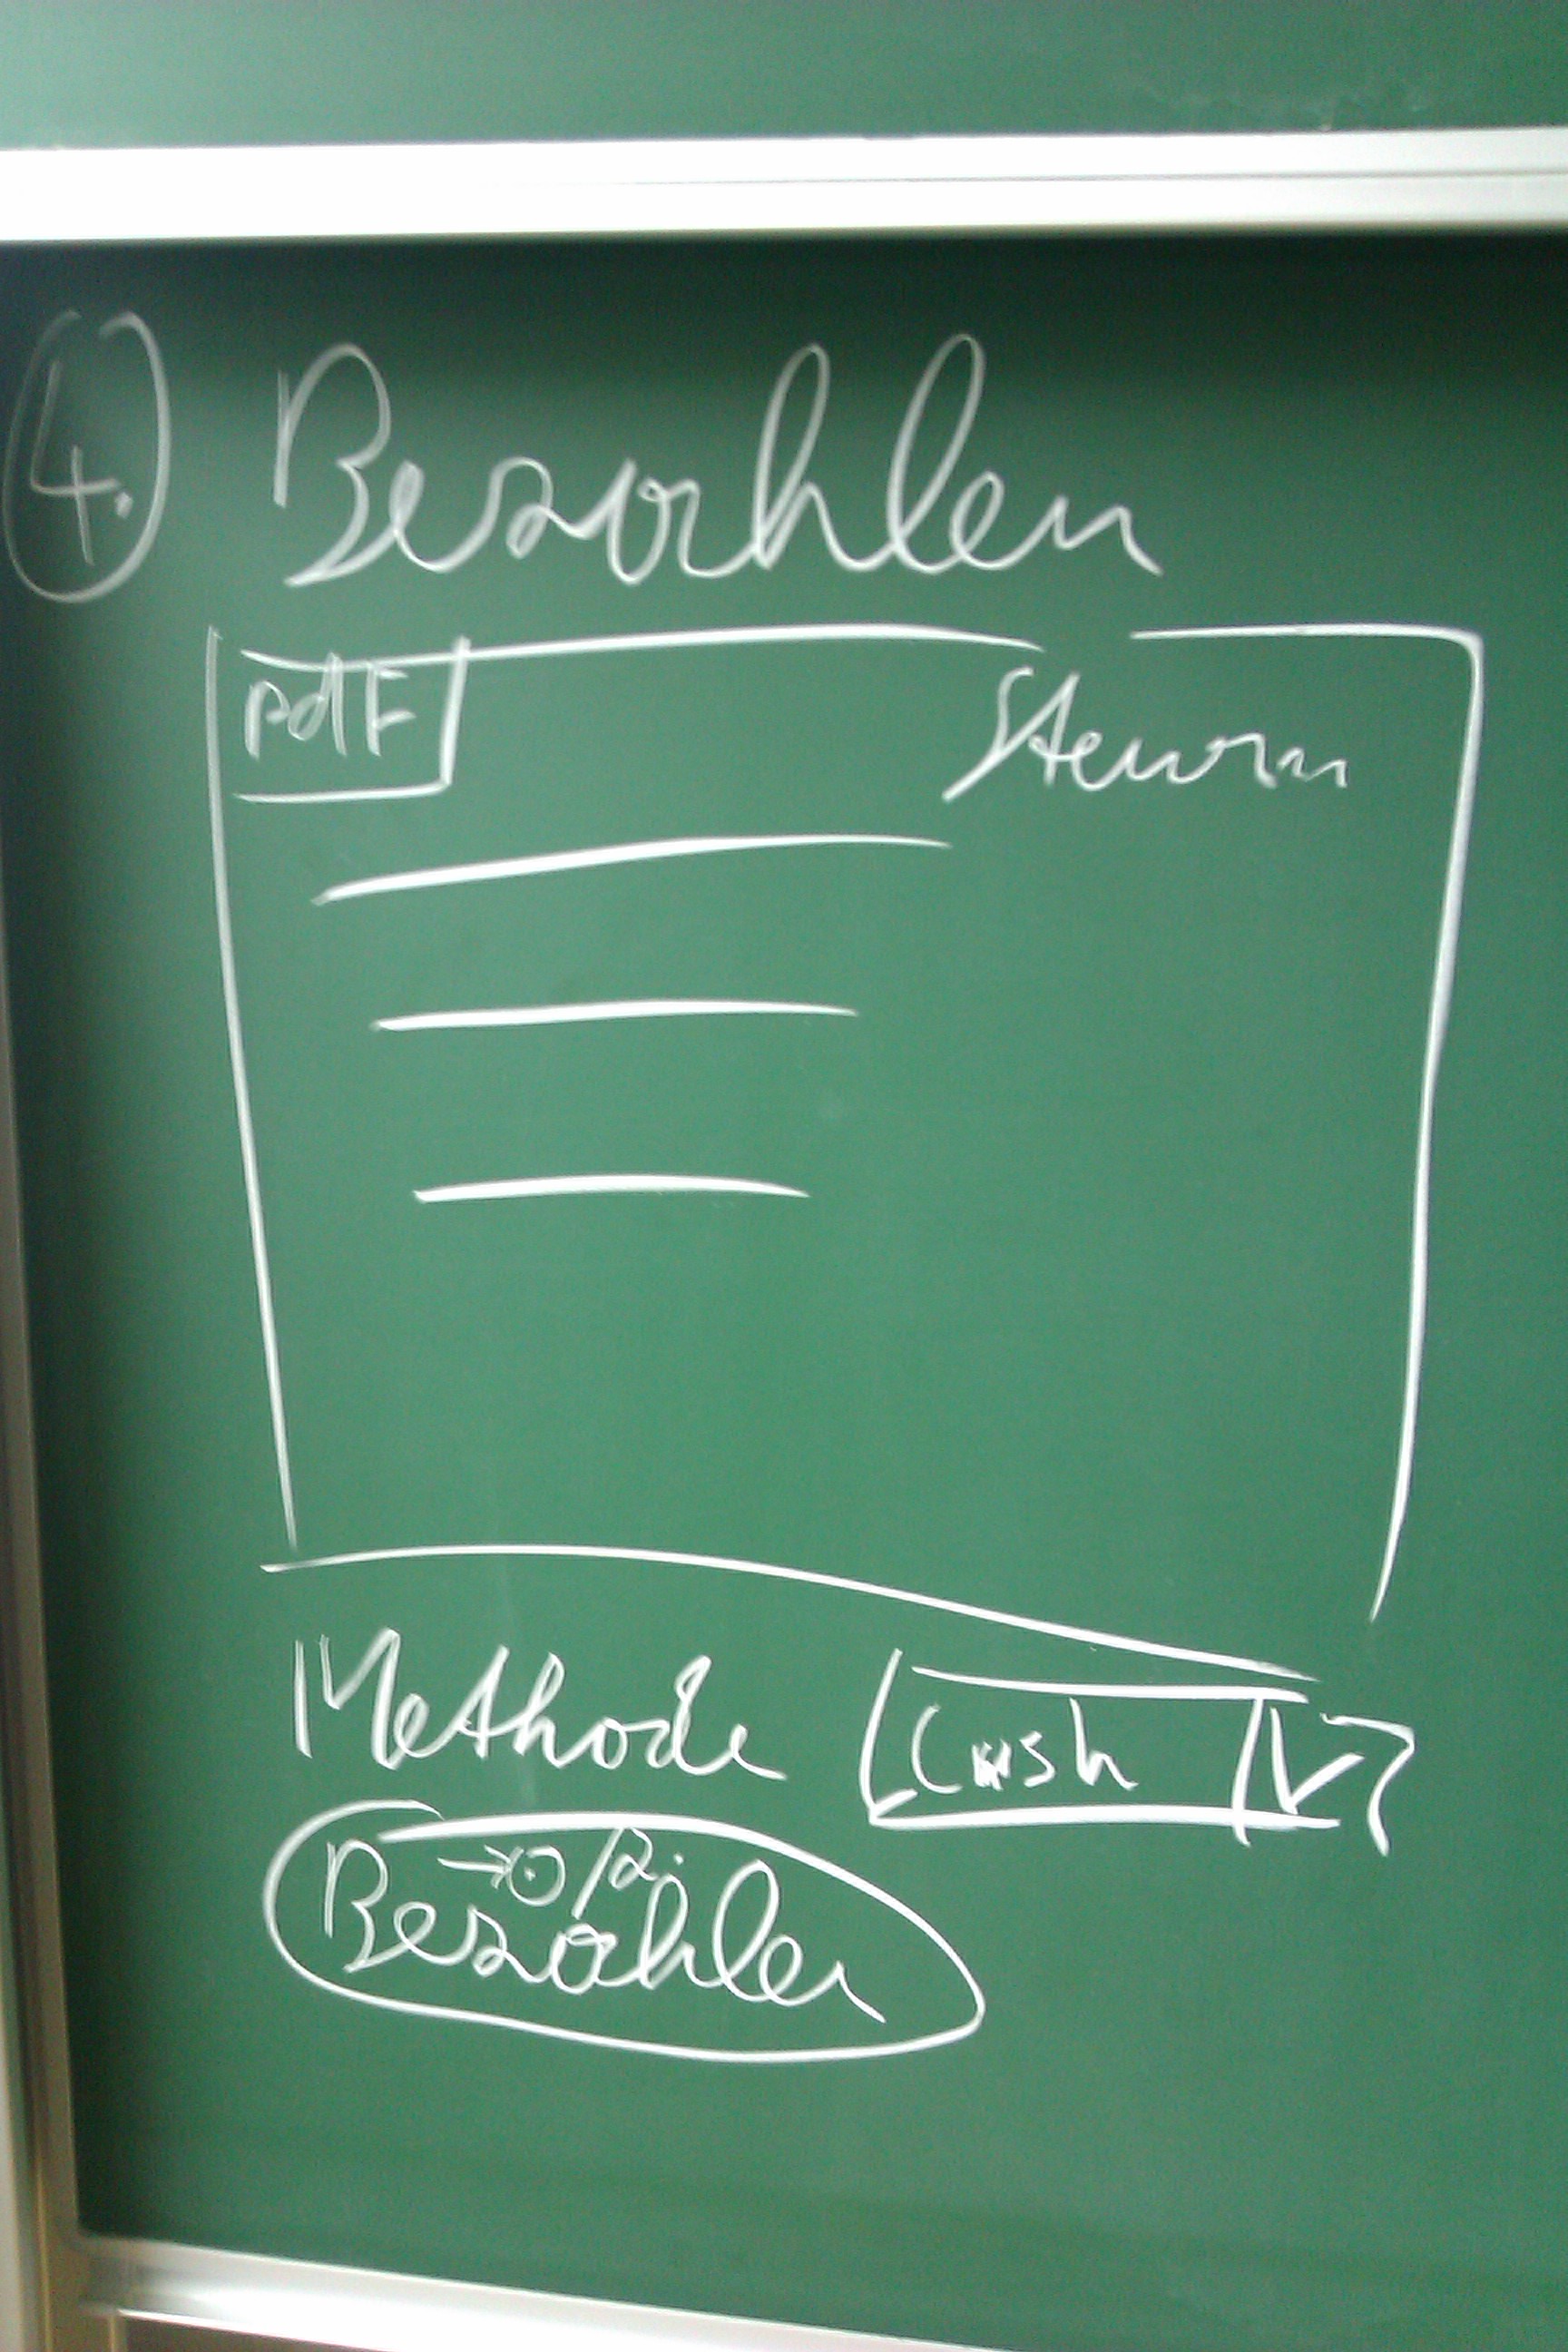 4. Bezahlen
pdF
Methode Cash
Bezahlen